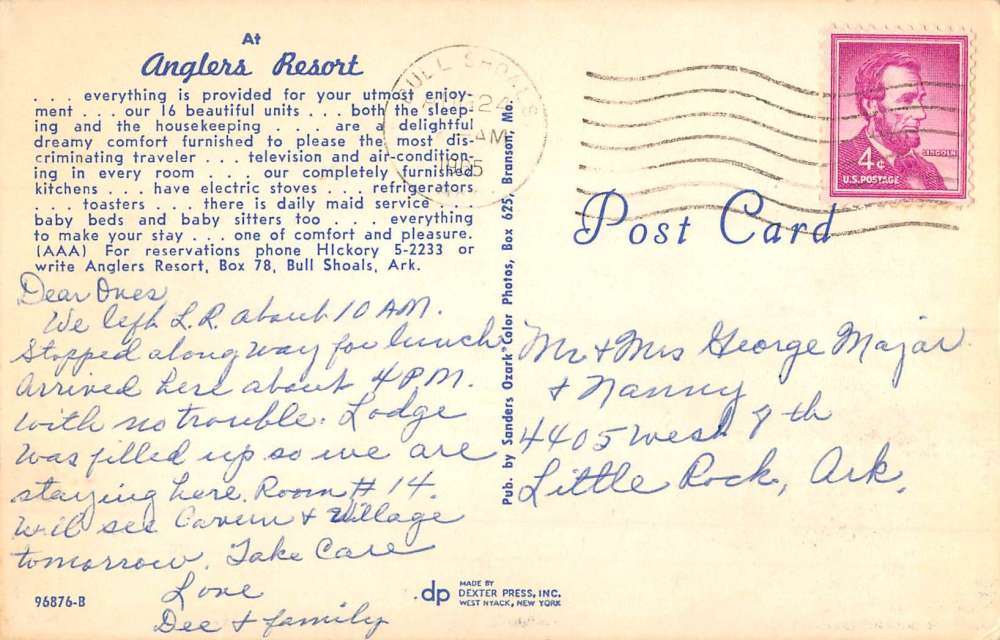 At
Anglers Resort
. . . everything is provided for your utmost enjoy-
ment . . . our 16 beautiful units . . . both the sleep-
ing and the housekeeping . . . are a delightful
dreamy comfort furnished to please the most dis-
criminating traveler . . . television and air-condition-
ing in every room . . . our completely furnished
kitchens . . . have electric stoves . . . refrigerators
. . . toasters . . . there is daily maid service . . .
baby beds and baby sitters too . . . everything
to make your stay . . . one of comfort and pleasure.
(AAA) For reservations phone HIckory 5-2233 or
write Anglers Resort, Box 78, Bull Shoals, Ark.
Dear Ones
We left L.R. about 10 AM.
Stopped along way for lunch
Arrived here about 4 P.M.
with no trouble. Lodge
was filled up so we are
staying here. Room # 14.
Will see Cavern & Village
tomorrow. Take Care
Love
Dee & family
96876-B
Pub. by Sanders Ozark Color Photos, Box 625, Branson, Mo.
dp
MADE BY
DEXTER PRESS, INC.
WEST NYACK, NEW YORK
BULL SHOALS
24
AM
1965
LINCOLN
4¢
U.S. POSTAGE
Post Card
Mr & Mrs George Majar
& Nanny
4405 West 9th
Little Rock, Ark.